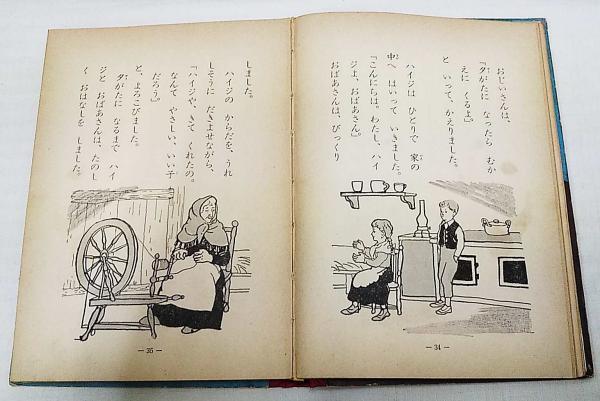 おじいさんは、
「夕がたに なったら むか
えに くるよ」
と いって、かえりました。
ハイジは ひとりで 家の
中へ はいって いきました。
「こんにちは。わたし、ハイ
ジよ、おばあさん」
おばあさんは、びっくり
— 34 —
しました。
ハイジの からだを、うれ
しそうに だきよせながら、
「ハイジや、きて くれたの。
なんて やさしい、いい子
だろう」
と、よろこびました。
夕がたに なるまで ハイ
ジと おばあさんは、たのし
く おはなしを しました。
— 35 —